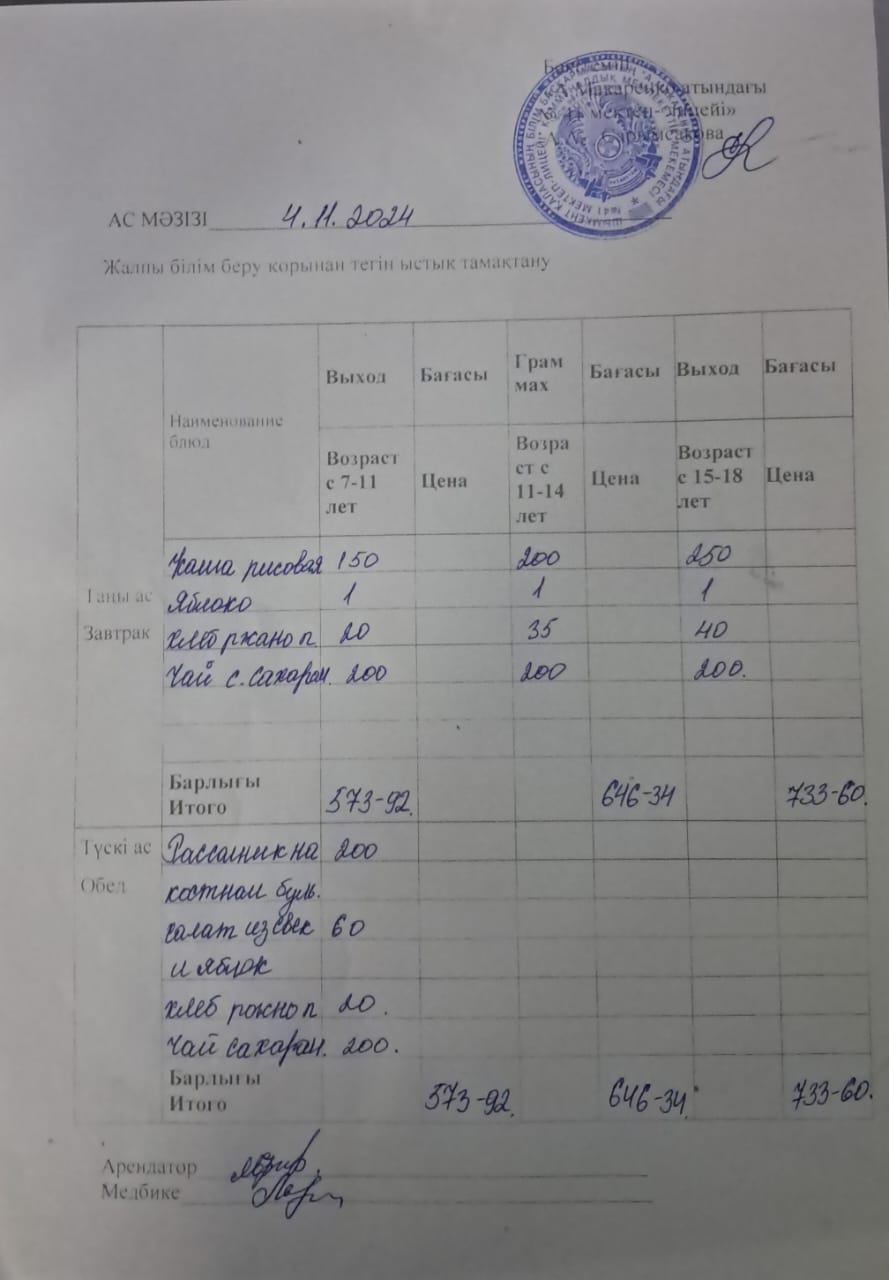 Бекітемін
А.Макаренко атындағы
мектеп-лицейі»
АС МӘЗІЗІ 4.11.2024
Жалпы білім беру қорынан тегін ыстық тамақтану
Наименование блюд Выход Бағасы Грам мах Бағасы Выход Бағасы
Возраст с 7-11 лет Цена Возра ст с 11-14 лет Цена Возраст с 15-18 лет Цена
Таңы ас
Завтрак
Каша рисовая 150 200 250
Яблоко 1 1 1
хлеб ржано п. 20 35 40
Чай с. сахаром. 200 200 200.
Барлығы
Итого 573-92. 646-34 733-60.
Түскі ас
Обед
Рассольник на 200
костном буль.
салат из свек 60
и яблок
хлеб рожно п 20.
Чай сахаром. 200.
Барлығы
Итого 573-92. 646-34 733-60.
Арендатор
Медбике